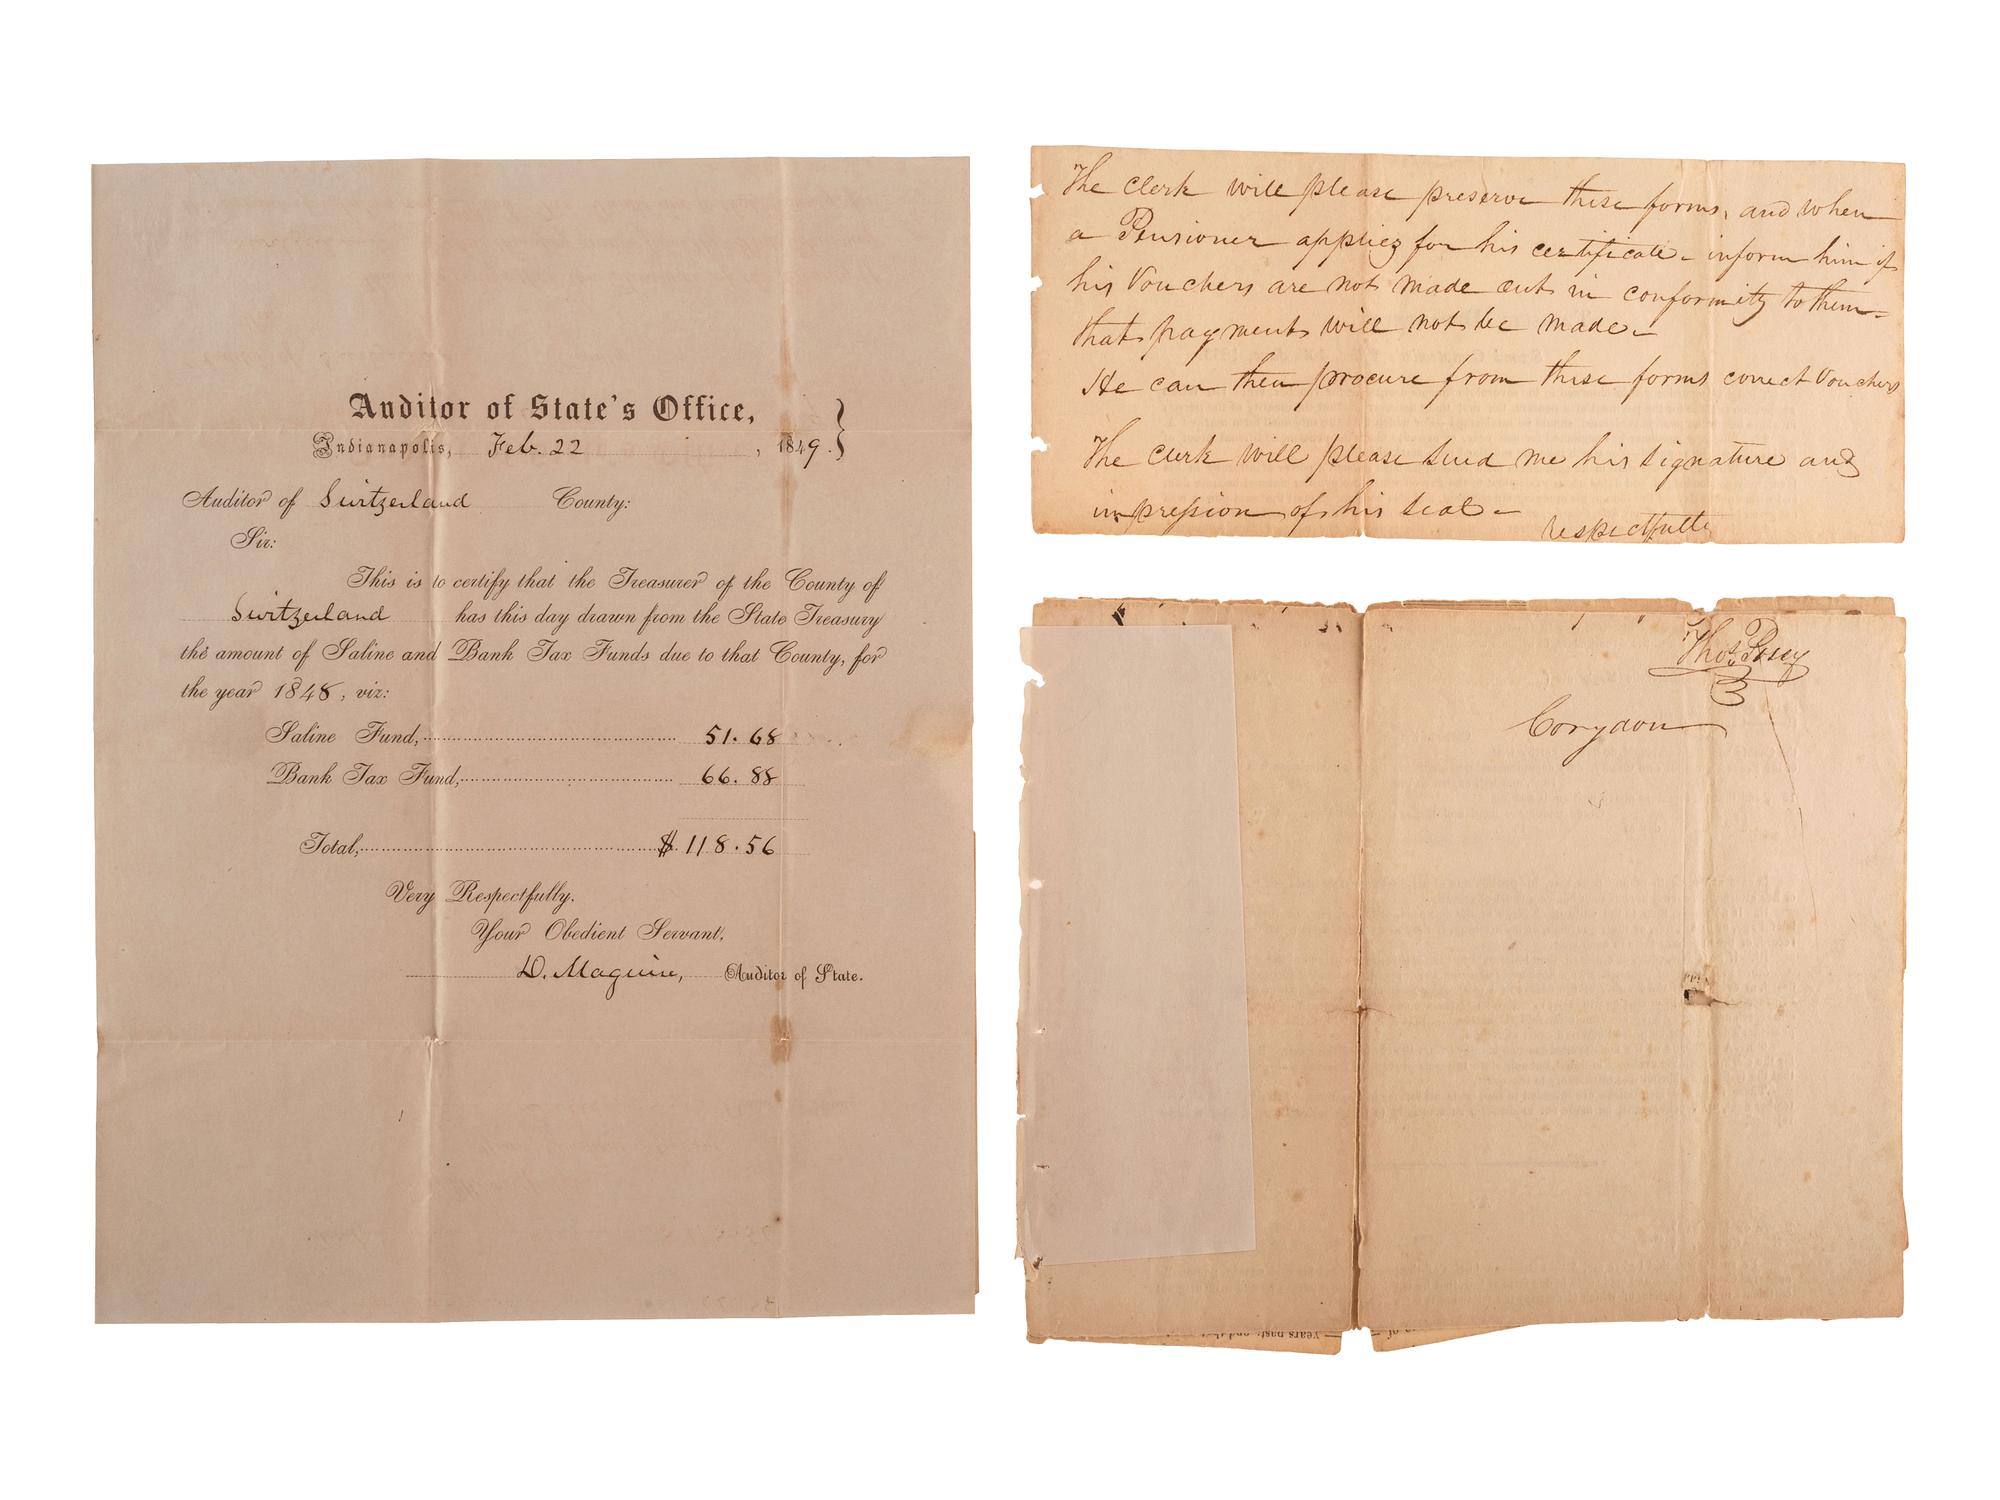 Auditor of State's Office,
Indianapolis, Feb. 22, 1849.
Auditor of Switzerland County:
Sir:
This is to certify that the Treasurer of the County of
Switzerland has this day drawn from the State Treasury
the amount of Saline and Bank Tax Funds due to that County, for
the year 1848, viz:
Saline Fund, 51.68
Bank Tax Fund, 66.88
Total, $118.56
Very Respectfully.
Your Obedient Servant,
D. Maguire, Auditor of State.
The clerk will please preserve these forms, and when
a Pensioner applies for his certificate - inform him if
his Vouchers are not made out in conformity to them -
that payments will not be made -
He can then procure from these forms correct Vouchers
The clerk will please send me his signature and
impression of his seal -
respectfully
Thos Posey
Corydon
years past; and that